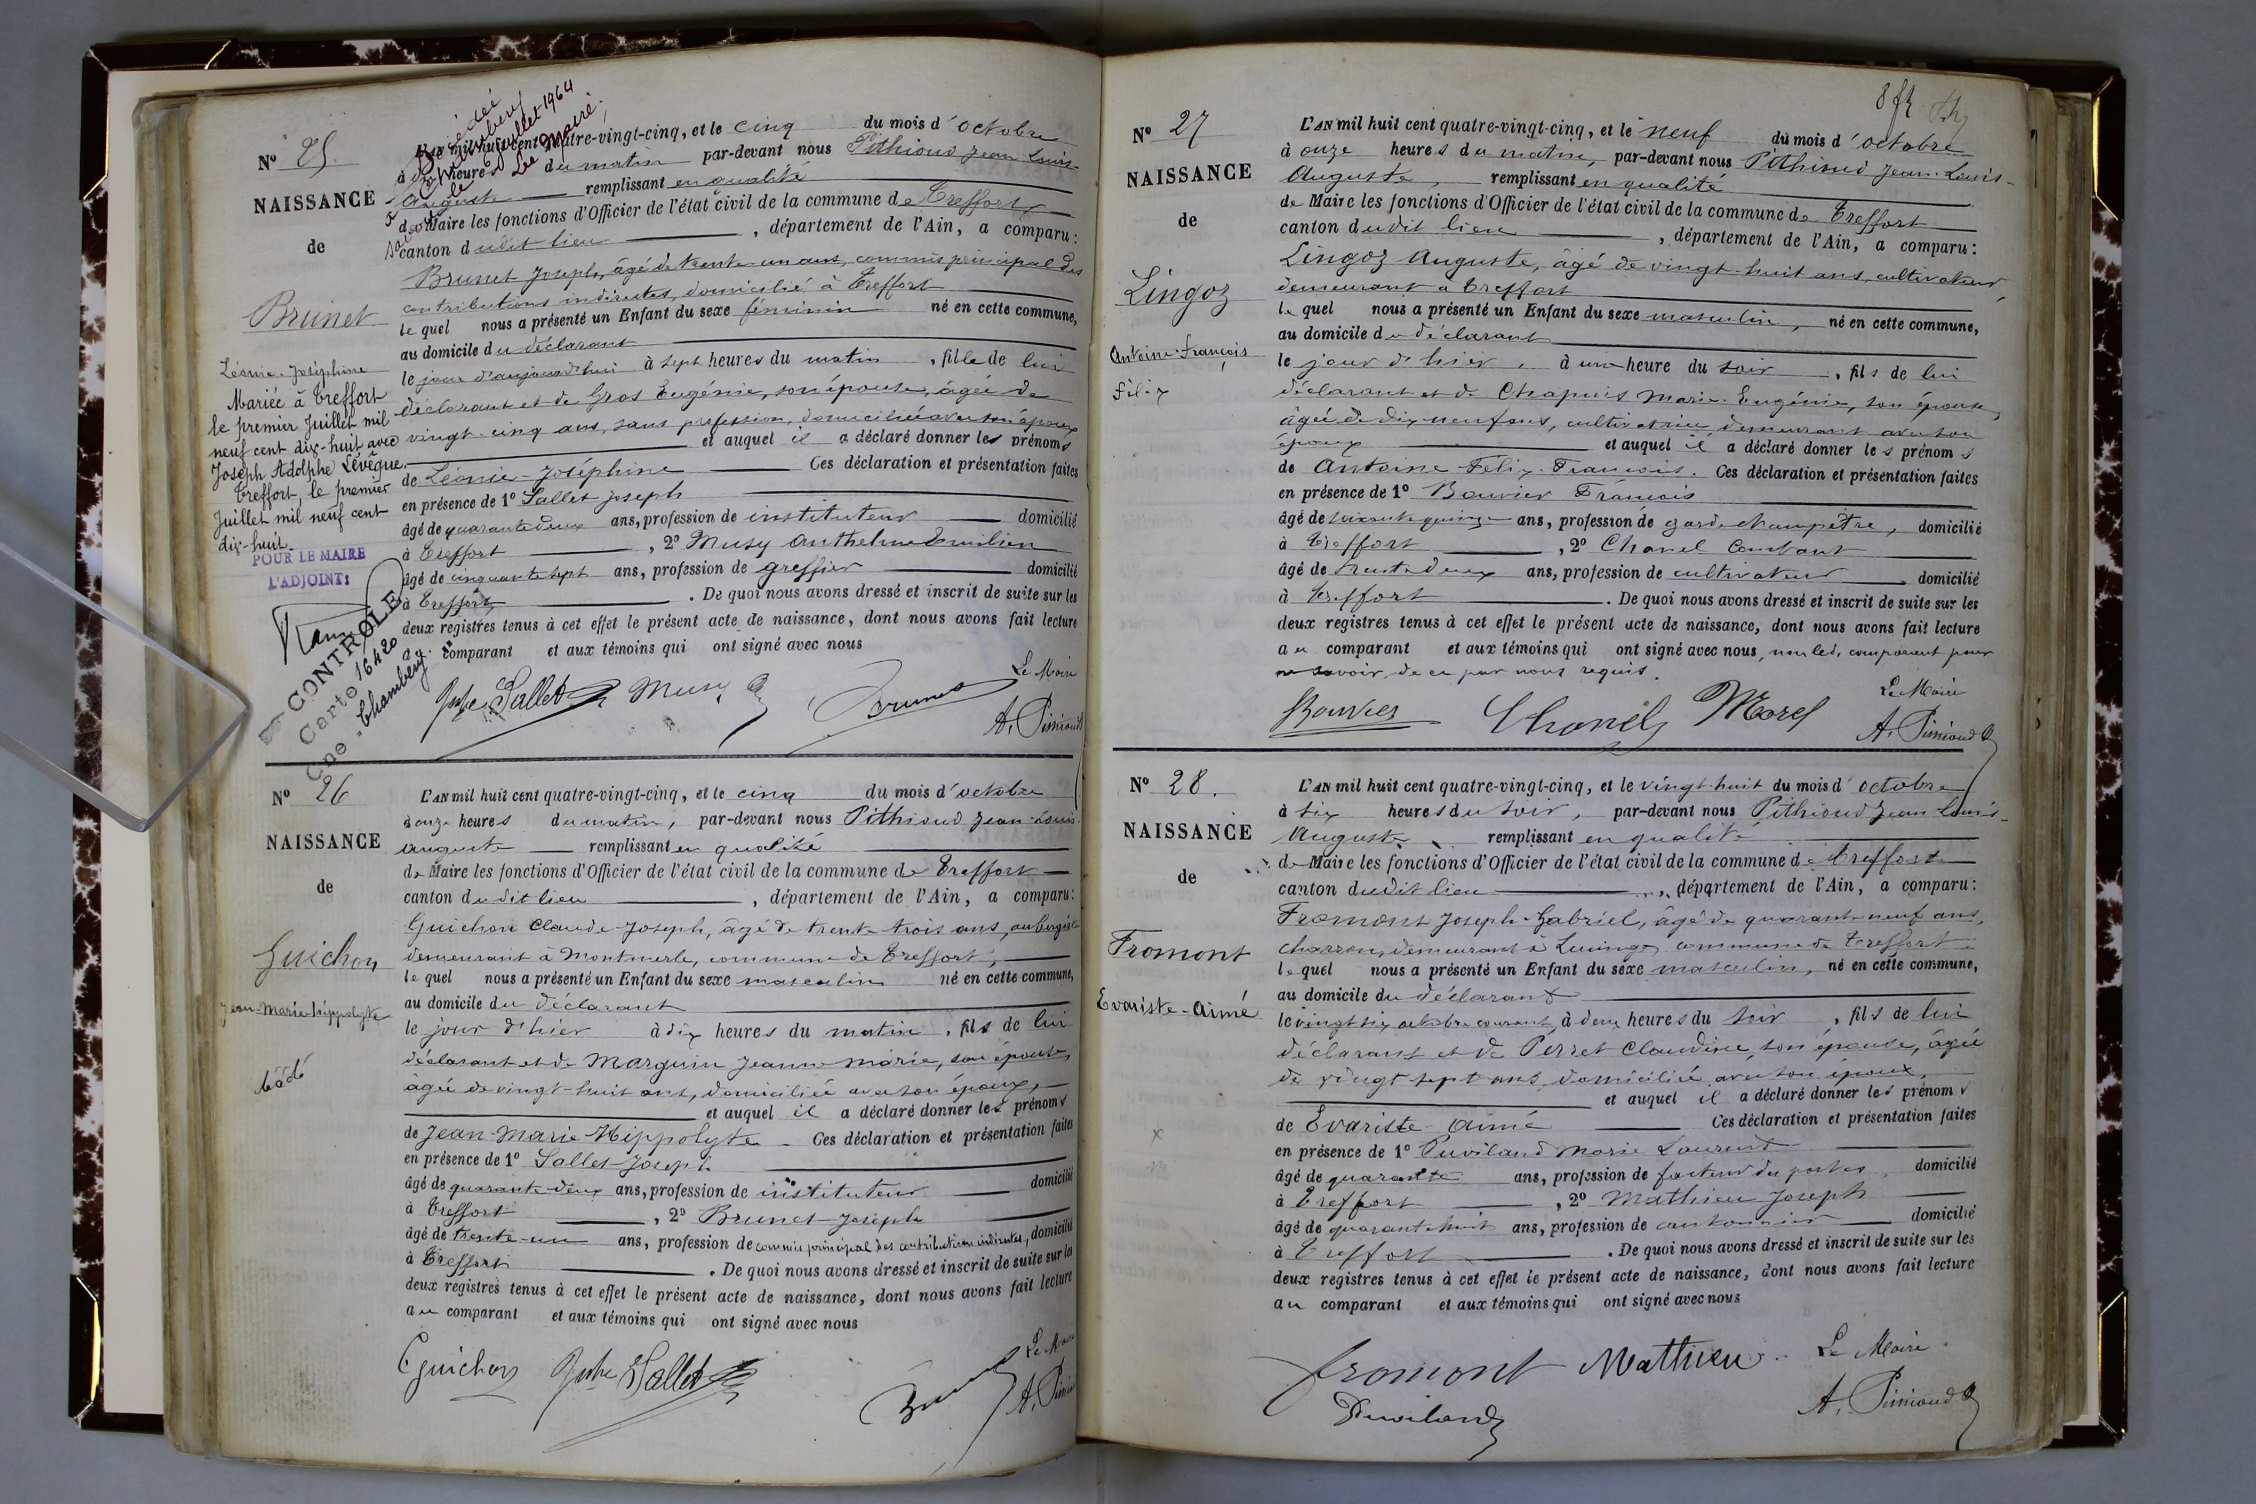 N° 25.
NAISSANCE
de
Brunet
Léonie-Joséphine
Mariée à Treffort
le premier Juillet mil
neuf cent dix-huit avec
Joseph Adolphe Lévêque.
Treffort, le premier
Juillet mil neuf cent
dix-huit.
POUR LE MAIRE
L'ADJOINT:
CONTRÔLE
Carte 16420
Cne - Chambéry
Juillet 1964
Le Maire.
L'AN mil huit cent quatre-vingt-cinq, et le cinq du mois d'octobre
à heures du matin par-devant nous Pithioud Jean-Louis-
Auguste remplissant en qualité
de Maire les fonctions d'Officier de l'état civil de la commune de Treffort
canton dudit lieu, département de l'Ain, a comparu:
Brunet Joseph, âgé de trente-un ans, commis principal des
contributions indirectes, domicilié à Treffort
lequel nous a présenté un Enfant du sexe féminin né en cette commune,
au domicile du déclarant
le jour d'aujourd'hui à sept heures du matin, fille de lui
déclarant et de Gros Eugénie, son épouse, âgée de
vingt-cinq ans, sans profession, domiciliée avec son époux
et auquel il a déclaré donner les prénoms
de Léonie-Joséphine Ces déclaration et présentation faites
en présence de 1° Sallet Joseph
âgé de quarante deux ans, profession de instituteur domicilié
à Treffort, 2° Musy Anthelme Emilien
âgé de cinquante sept ans, profession de greffier domicilié
à Treffort. De quoi nous avons dressé et inscrit de suite sur les
deux registres tenus à cet effet le présent acte de naissance, dont nous avons fait lecture
au comparant et aux témoins qui ont signé avec nous
Le Maire
Sallet Musy Brunet A. Pithioud
N° 26
NAISSANCE
de
Guichon
Jean-Marie-Hippolyte
L'AN mil huit cent quatre-vingt-cinq, et le cinq du mois d'octobre
à onze heures du matin, par-devant nous Pithioud Jean-Louis-
Auguste remplissant en qualité
de Maire les fonctions d'Officier de l'état civil de la commune de Treffort
canton dudit lieu, département de l'Ain, a comparu:
Guichon Claude-Joseph, âgé de trente-trois ans, aubergiste
demeurant à Montmerle, commune de Treffort,
lequel nous a présenté un Enfant du sexe masculin né en cette commune,
au domicile du déclarant
le jour d'hier à dix heures du matin, fils de lui
déclarant et de Marguin Jeanne-Marie, son épouse,
âgée de vingt-huit ans, domiciliée avec son époux,
et auquel il a déclaré donner les prénoms
de Jean-Marie-Hippolyte - Ces déclaration et présentation faites
en présence de 1° Sallet Joseph
âgé de quarante-deux ans, profession de instituteur domicilié
à Treffort, 2° Brunet Joseph
âgé de trente-un ans, profession de commis principal des contributions indirectes, domicilié
à Treffort. De quoi nous avons dressé et inscrit de suite sur les
deux registres tenus à cet effet le présent acte de naissance, dont nous avons fait lecture
au comparant et aux témoins qui ont signé avec nous
Le Maire
Guichon Sallet
N° 27
NAISSANCE
de
Lingoz
Antoine-François
Félix
L'AN mil huit cent quatre-vingt-cinq, et le neuf du mois d'octobre
à onze heures du matin, par-devant nous Pithioud Jean-Louis-
Auguste, remplissant en qualité
de Maire les fonctions d'Officier de l'état civil de la commune de Treffort
canton dudit lieu, département de l'Ain, a comparu:
Lingoz Auguste, âgé de vingt-huit ans, cultivateur,
demeurant à Treffort
lequel nous a présenté un Enfant du sexe masculin, né en cette commune,
au domicile du déclarant
le jour d'hier, à une heure du soir, fils de lui
déclarant et de Chapuis Marie-Eugénie, son épouse,
âgée de dix-neuf ans, cultivatrice demeurant avec son
époux et auquel il a déclaré donner les prénoms
de Antoine-Felix-François. Ces déclaration et présentation faites
en présence de 1° Bouvier François
âgé de soixante quinze ans, profession de garde champêtre, domicilié
à Treffort, 2° Chanel Constant
âgé de trente deux ans, profession de cultivateur domicilié
à Treffort. De quoi nous avons dressé et inscrit de suite sur les
deux registres tenus à cet effet le présent acte de naissance, dont nous avons fait lecture
au comparant et aux témoins qui ont signé avec nous, non led. comparant pour
ne savoir, de ce par nous requis.
Le Maire
Bouvier Chanel Morel A. Pithioud
N° 28.
NAISSANCE
de
Fromont
Evariste-Aimé
L'AN mil huit cent quatre-vingt-cinq, et le vingt-huit du mois d'octobre
à six heures du soir, par-devant nous Pithioud Jean-Louis-
Auguste remplissant en qualité
de Maire les fonctions d'Officier de l'état civil de la commune de Treffort
canton dudit lieu, département de l'Ain, a comparu:
Fromont Joseph-Gabriel, âgé de quarante-neuf ans,
charron, demeurant à Lucinges commune de Treffort
lequel nous a présenté un Enfant du sexe masculin, né en cette commune,
au domicile du déclarant
le vingt six octobre courant, à deux heures du soir, fils de lui
déclarant et de Perret Claudine, son épouse, âgée
de vingt sept ans, domiciliée avec son époux,
et auquel il a déclaré donner les prénoms
de Evariste-Aimé Ces déclaration et présentation faites
en présence de 1° Puviland Marie Laurent
âgé de quarante ans, profession de facteur des postes, domicilié
à Treffort, 2° Mathieu Joseph
âgé de quarante huit ans, profession de cantonnier domicilié
à Treffort. De quoi nous avons dressé et inscrit de suite sur les
deux registres tenus à cet effet le présent acte de naissance, dont nous avons fait lecture
au comparant et aux témoins qui ont signé avec nous
Fromont Mathieu Le Maire
Puviland A. Pithioud